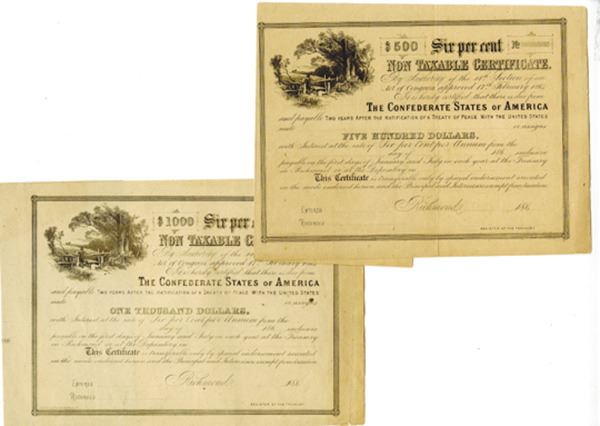 $500 Six per cent No
NON TAXABLE CERTIFICATE.
By Authority of the 14th Section of an
Act of Congress approved 17th February 1864
It is hereby certified that there is due from
THE CONFEDERATE STATES OF AMERICA
and payable TWO YEARS AFTER THE RATIFICATION OF A TREATY OF PEACE WITH THE UNITED STATES
unto or assigns
FIVE HUNDRED DOLLARS,
with Interest at the rate of Six per Cent per Annum from the
day of 186 inclusive
payable on the first days of January and July in each year at the Treasury
in Richmond or at the Depository in
This Certificate is transferable only by special endorsement executed
in the mode endorsed hereon and the Principal and Interest are exempt from taxation
ENTERED
RECORDED
Richmond, 186
REGISTER OF THE TREASURY.
$1000 Six per c
NON TAXABLE CE
By Authority of the
Act of Congress approved 17th
It is hereby certified that there is due from
THE CONFEDERATE STATES OF AMERICA
and payable TWO YEARS AFTER THE RATIFICATION OF A TREATY OF PEACE WITH THE UNITED STATES
unto or assigns
ONE THOUSAND DOLLARS,
with Interest at the rate of Six per Cent per Annum from the
day of 186 inclusive
payable on the first days of January and July in each year at the Treasury
in Richmond or at the Depository in
This Certificate is transferable only by special endorsement executed
in the mode endorsed hereon and the Principal and Interest are exempt from taxation
ENTERED
RECORDED
Richmond, 186
REGISTER OF THE TREASURY.